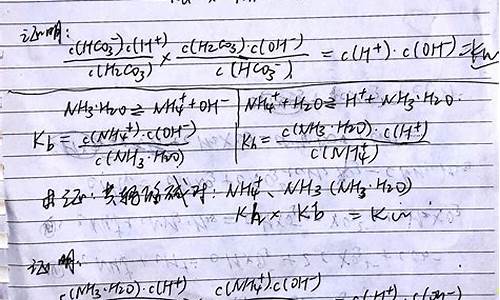 证明:
c(HCO₃⁻)·c(H⁺)/c(H₂CO₃) × c(H₂CO₃)·c(OH⁻)/c(HCO₃⁻) = c(H⁺)·c(OH⁻)=Kw
NH₃·H₂O⇌NH₄⁺+OH⁻ NH₄⁺+H₂O⇌H⁺+NH₃·H₂O.
Kb=c(NH₄⁺)·c(OH⁻)/c(NH₃·H₂O) Kh=c(NH₃·H₂O)·c(H⁺)/c(NH₄⁺)
共轭酸碱对: NH₄⁺、NH₃(NH₃·H₂O)
Kh × Kb = Kw
证明.
c(NH₃·H₂O)·c(H⁺) c(NH₄⁺)·c(OH⁻) c(H⁺)·c(OH⁻)